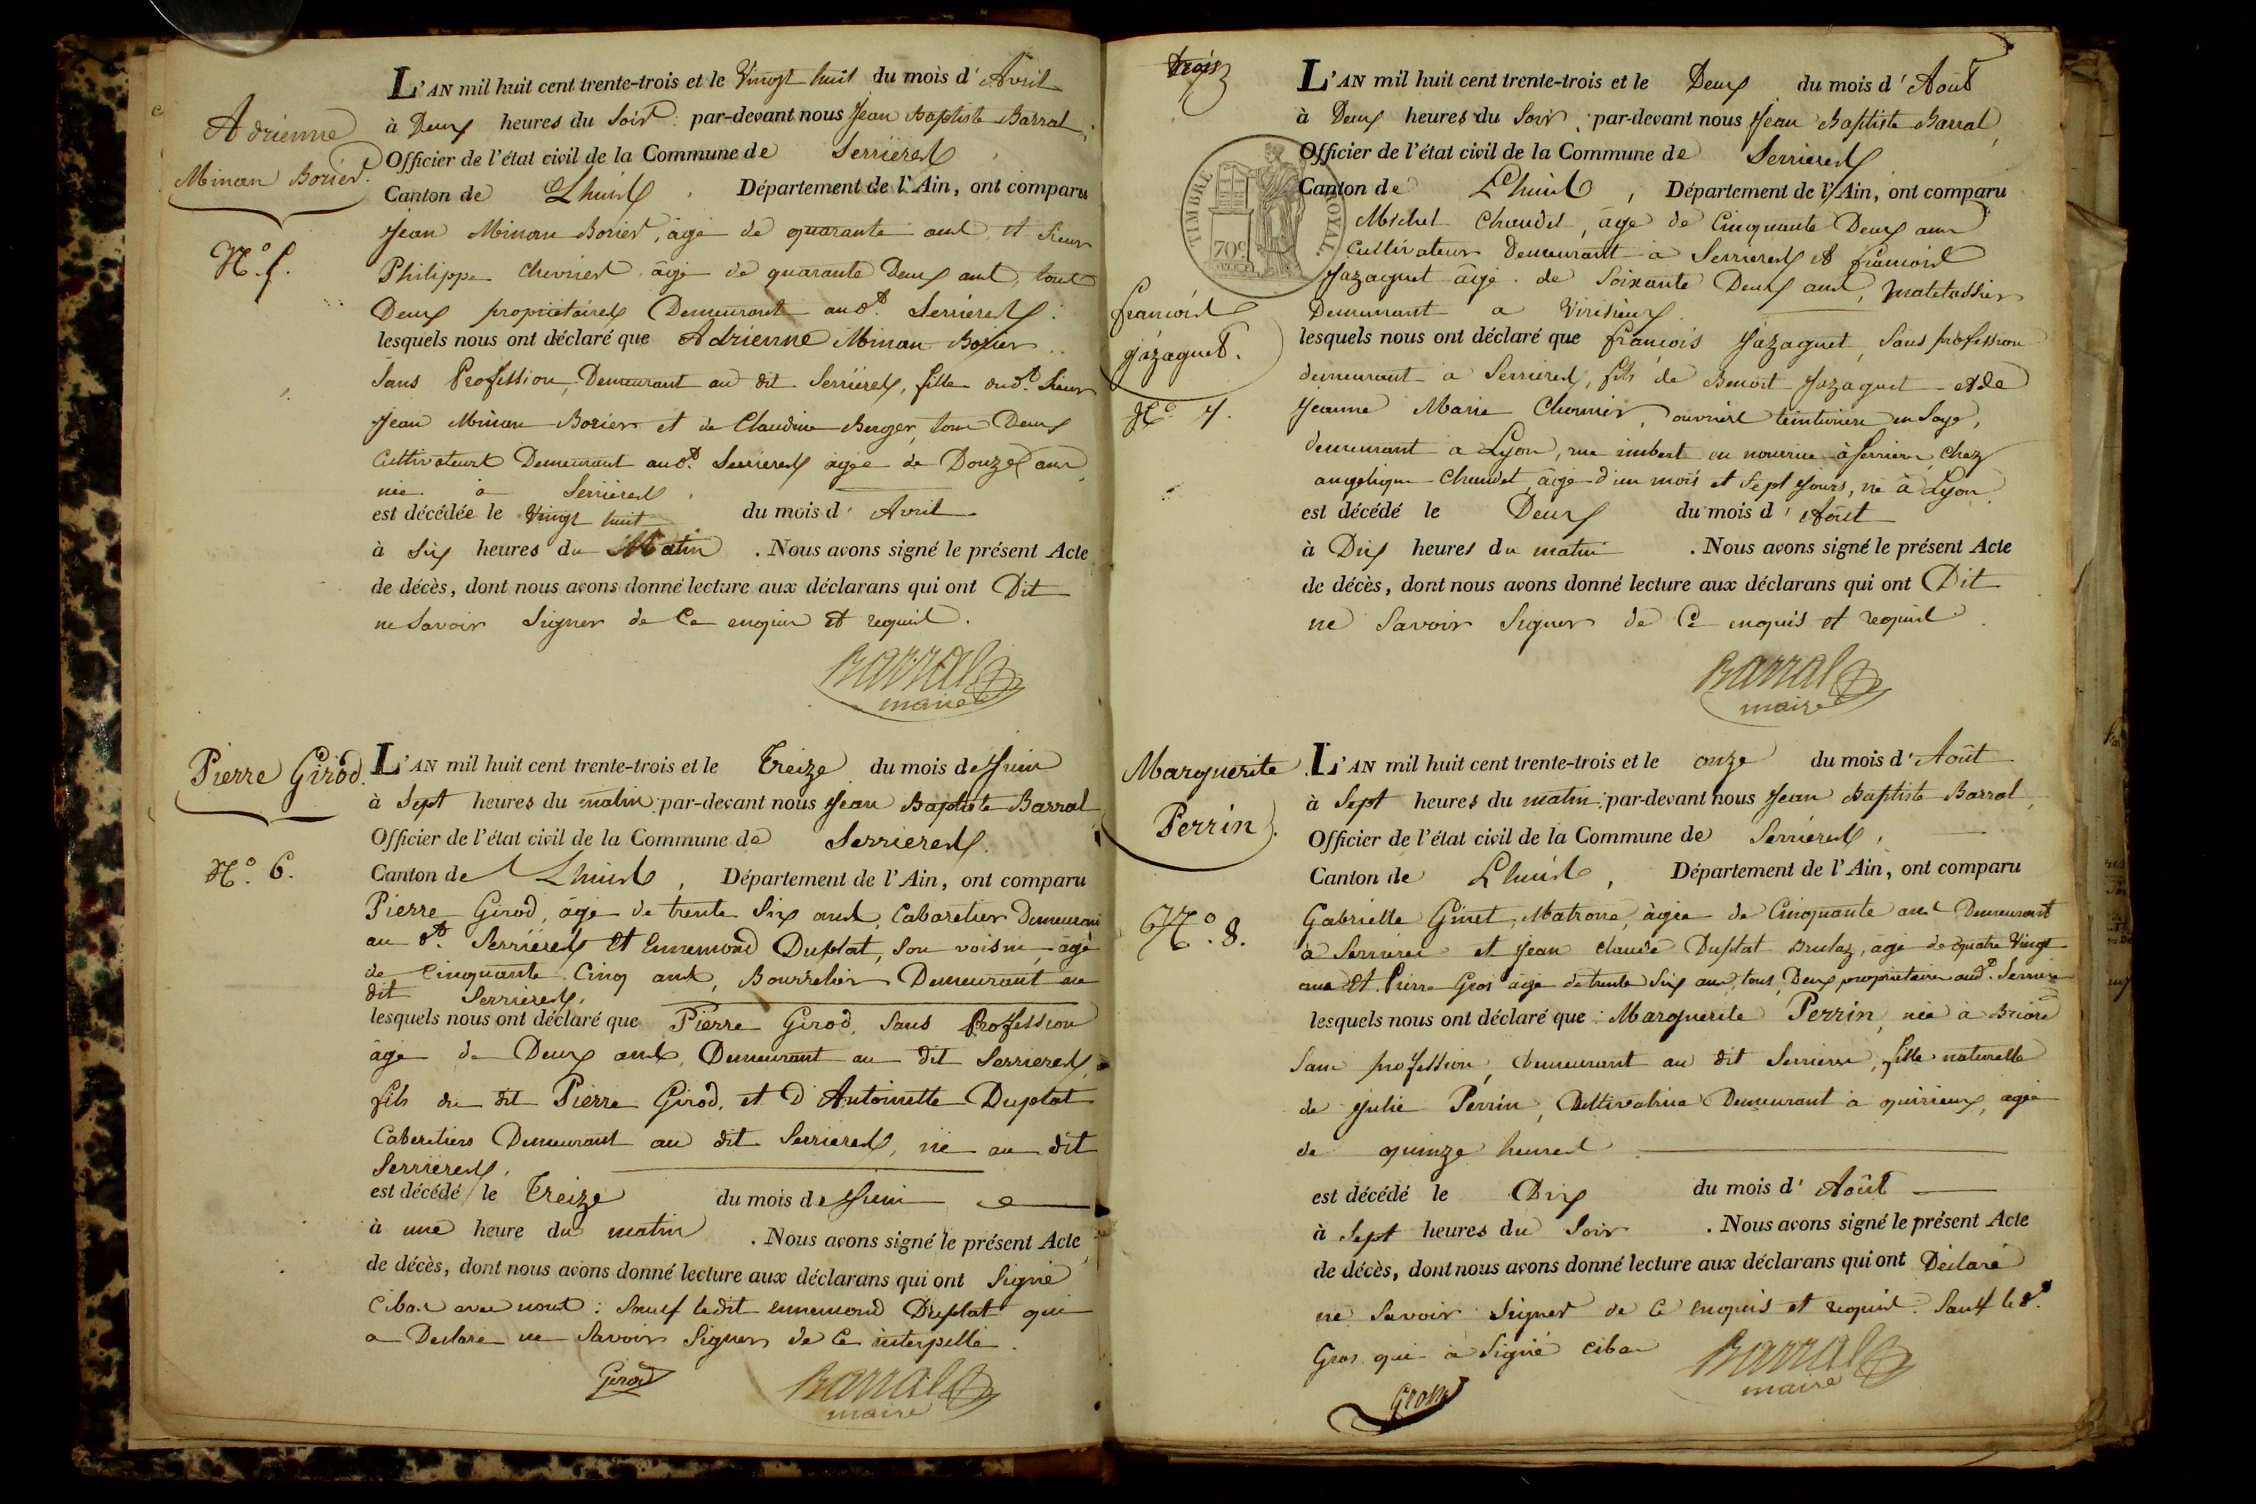 Adrienne
Minan Borier.
N.º 5.
L'AN mil huit cent trente-trois et le Vingt huit du mois d'Avril
à Deux heures du Soir par-devant nous Jean Baptiste Barral,
Officier de l'état civil de la Commune de Serrieres
Canton de Lhuis, Département de l'Ain, ont comparu
Jean Minan Borier, âgé de quarante ans et Sieur
Philippe Chevrier âgé de quarante Deux ans, tous
Deux propriétaires Demeurant aud.t Serrieres.
lesquels nous ont déclaré que Adrienne Minan Borier
Sans Profession, Demeurant au dit Serrieres, fille dud.t Sieur
Jean Minan Borier et de Claudine Berger, tous Deux
Cultivateurs Demeurant aud.t Serrieres agée de Douze ans
née à Serrieres
est décédée le Vingt huit du mois d'Avril
à Six heures du Matin. Nous avons signé le présent Acte
de décès, dont nous avons donné lecture aux déclarans qui ont Dit
ne Savoir Signer de Ce enquis et requis.
Barral
maire
Pierre Girod.
N.º 6.
L'AN mil huit cent trente-trois et le Treize du mois de Juin
à Sept heures du matin, par-devant nous Jean Baptiste Barral
Officier de l'état civil de la Commune de Serrieres.
Canton de Lhuis, Département de l'Ain, ont comparu
Pierre Girod, âgé de trente Six ans, Cabaretier Demeurant
au d.t Serrieres Et Ennemond Duplat, Son voisin, âgé
de Cinquante Cinq ans, Bourrelier Demeurant au
dit Serrieres.
lesquels nous ont déclaré que Pierre Girod, Sans Profession
âgé de Deux ans, Demeurant au dit Serrieres,
fils du dit Pierre Girod, et D'Antoinette Duplat
Caberetiers Demeurant au dit Serrieres, né au dit
Serrieres.
est décédé le Treize du mois de Juin
à une heure du matin. Nous avons signé le présent Acte
de décès, dont nous avons donné lecture aux déclarans qui ont Signé
Cibas avec nous: Sauf ledit Ennemond Duplat qui
a Declaré ne Savoir Signer de Ce interpellé.
Girod
Barral
maire
trois
TIMBRE ROYAL
70c
françois
Jazaguet.
N.º 7.
L'AN mil huit cent trente-trois et le Deux du mois d'Août
à Deux heures du Soir, par-devant nous Jean Baptiste Barral,
Officier de l'état civil de la Commune de Serrieres
Canton de Lhuis, Département de l'Ain, ont comparu
Michel Chaudet, âgé de Cinquante Deux ans
Cultivateur Demeurant à Serrieres et françois
Jazaguet âgé de Soixante Deux ans, Matelassier
Demeurant a Virieux.
lesquels nous ont déclaré que françois Jazaguet, Sans profession
demeurant a Serrieres, fils de Benoit Jazaguet et de
Jeanne Marie Chounier, ouvriere teinturiere en Soye,
demeurant a Lyon, rue imbert en nourrice à Serriere chez
angelique Chaudet, âgé d'un mois et Sept jours, né à Lyon
est décédé le Deux du mois d'Août
à Dix heures du matin. Nous avons signé le présent Acte
de décès, dont nous avons donné lecture aux déclarans qui ont Dit
ne Savoir Signer de Ce enquis et requis
Barral
maire
Marguerite
Perrin.
N.º 8.
L'AN mil huit cent trente-trois et le onze du mois d'Août
à Sept heures du matin, par-devant nous Jean Baptiste Barral,
Officier de l'état civil de la Commune de Serrieres,
Canton de Lhuis, Département de l'Ain, ont comparu
Gabrielle Ginet, Matrone, âgée de Cinquante ans Demeurant
à Serrieres et Jean Claude Duplat Brulaz, âgé de quatre Vingt
ans Et Pierre Gros âgé de trente Six ans, tous Deux proprietaires aud.t Serriere
lesquels nous ont déclaré que Marguerite Perrin, née à Briord
Sans profession, Demeurant au dit Serrieres, fille naturelle
de Julie Perrin, Cultivatrice Demeurant à quirieux, agée
de quinze heures
est décédé le Dix du mois d'Août
à Sept heures du Soir. Nous avons signé le présent Acte
de décès, dont nous avons donné lecture aux déclarans qui ont Déclaré
ne Savoir Signer de Ce enquis et requis. Sauf le d.t
Gros qui à Signé cibas
Barral
maire
Gros